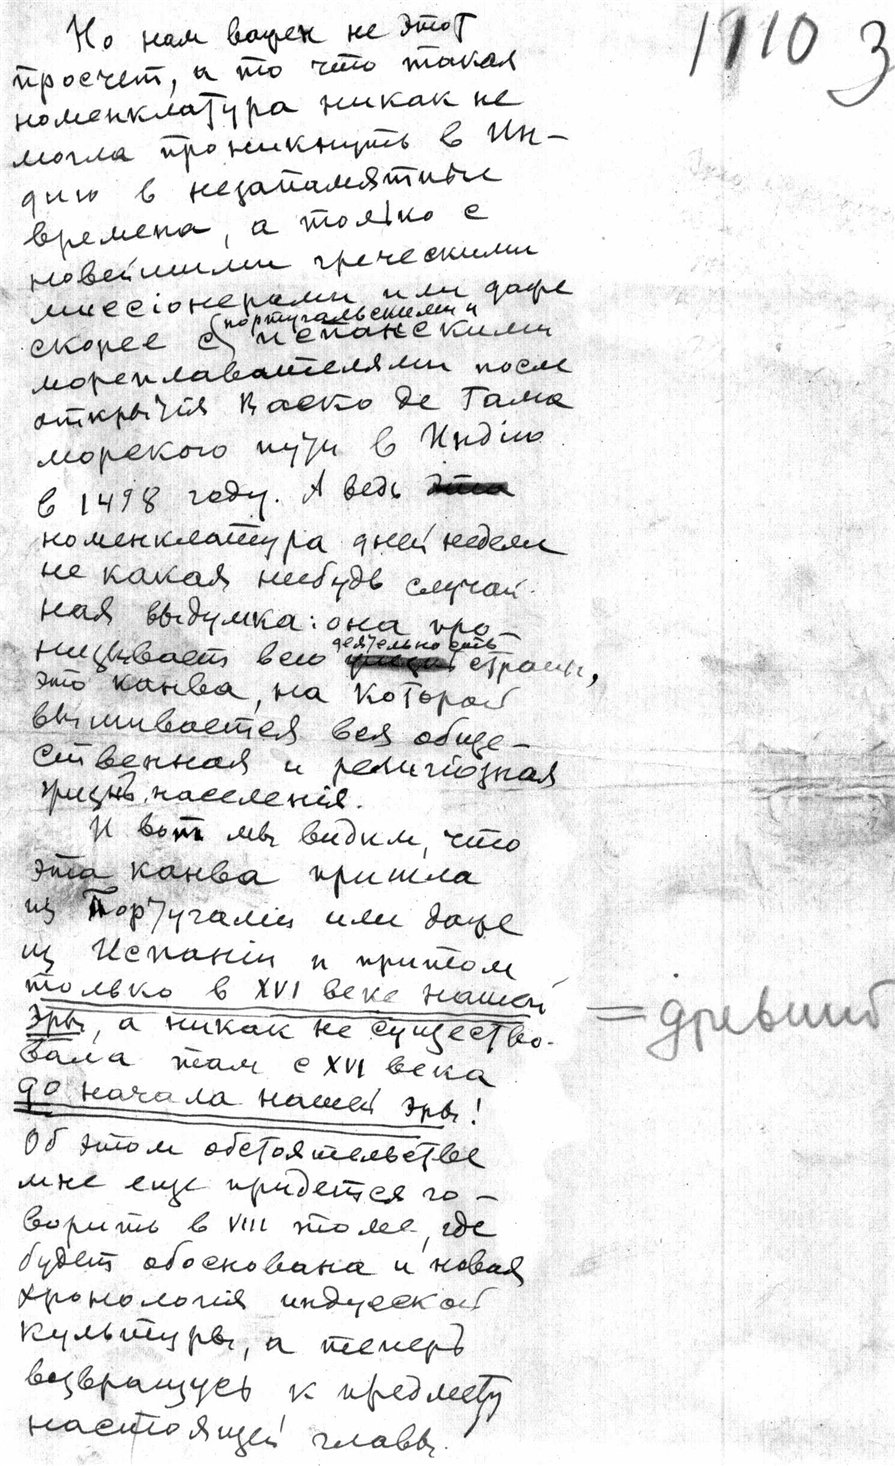 1910 3
Но нам важен не этот
просчет, а то что такая
номенклатура никак не
могла проникнуть в Ин-
дию в незапамятные
времена, а только с
новейшими греческими
миссіонерами или даже
португальскими и
скорее с испанскими
мореплавателями после
открытія Васко де Гама
морского пути в Индію
в 1498 году. А ведь эта
номенклатура дней недели
не какая нибудь случай-
ная выдумка: она про-
деятельность
низывает всю страны,
это канва, на которой
вышивается вся обще-
ственная и религіозная
жизнь населенія.
И вот мы видим, что
эта канва пришла
из Португаліи или даже
из Испаніи и притом
только в XVI веке нашей
эры, а никак не существо-
= древний
вала там с XVI века
до начала нашей эры!
Об этом обстоятельстве
мне еще придется го-
ворить в VIII томе, где
будет обоснована и новая
хронологія индусской
культуры, а теперь
возвращусь к предмету
настоящей главы.